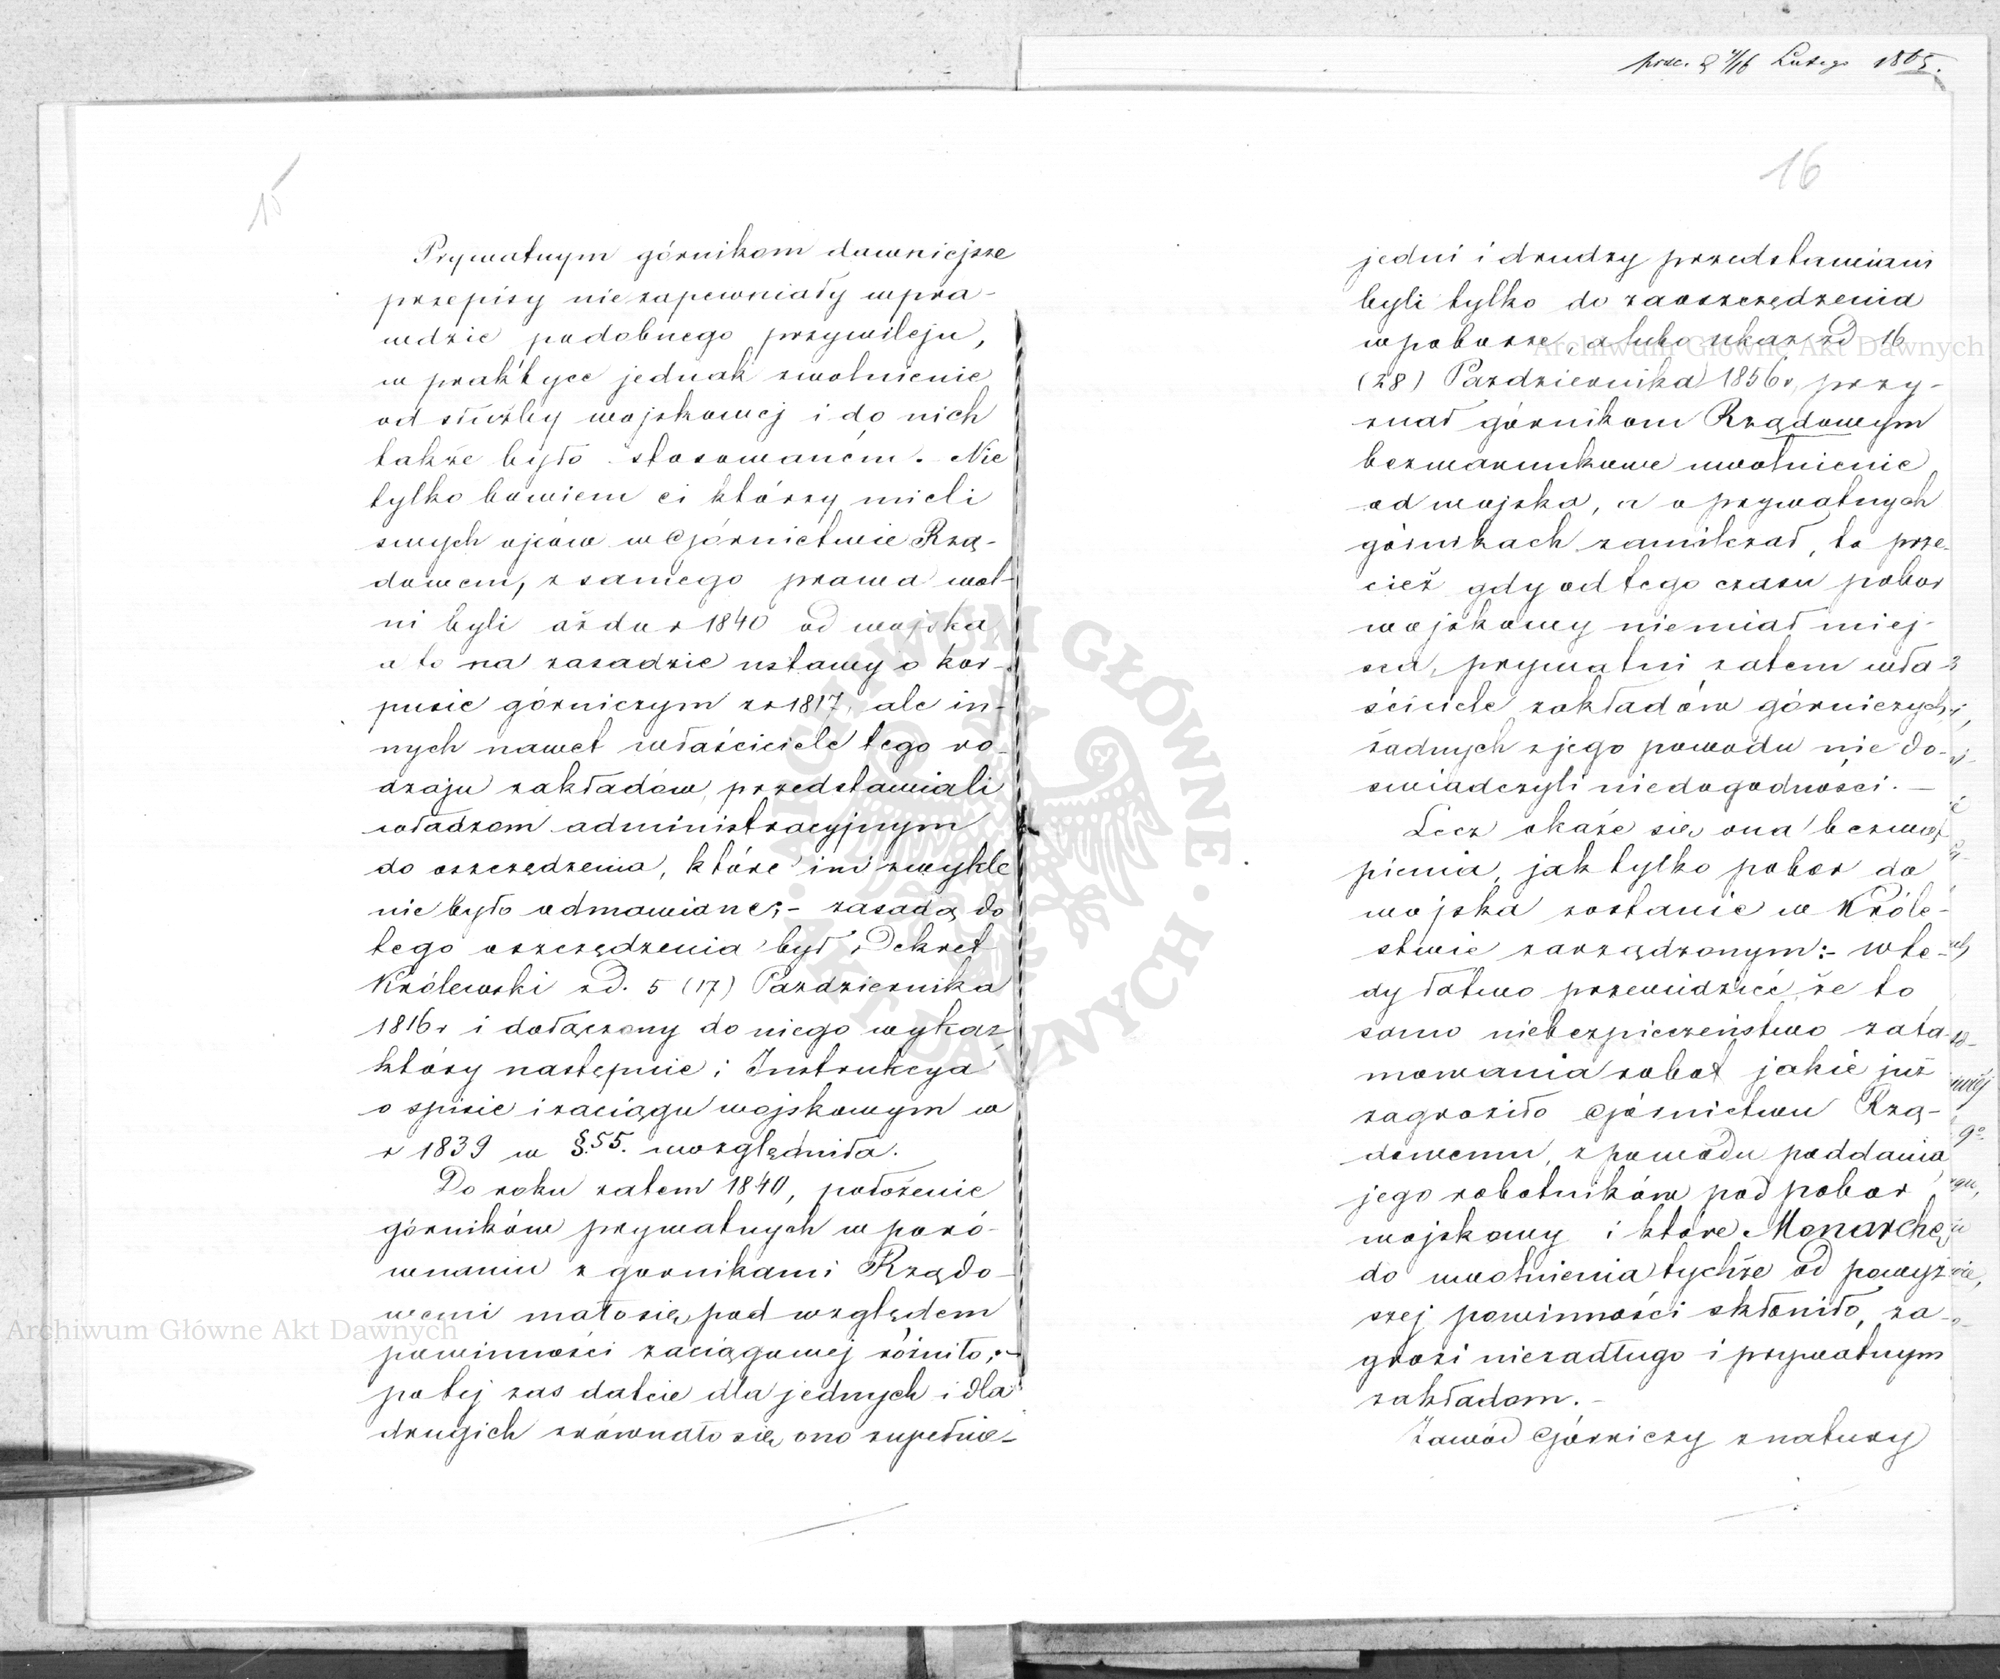 15
Prywatnym górnikom dawniejsze
przepisy niezapewniały wpra-
wdzie podobnego przywileju,
w praktyce jednak zwolnienie
od służby wojskowej i do nich
także było stosowaném. Nie
tylko bowiem ci którzy mieli
swych ojców w Górnictwie Rzą-
dowem, z samego prawa wol-
ni byli aż do r 1840 od wojska
a to na zasadzie ustawy o kor-
pusie górniczym z r 1817, ale in-
nych nawet właściciele tego ro-
dzaju zakładów przedstawiali
władzom administracyjnym
do oszczędzenia, które im zwykle
nie było odmawiane;- zasadą do
tego oszczędzenia był Dekret
Królewski z d. 5 (17) Pazdziernika
1816 r i dołączony do niego wykaz
który następnie i Instrukcya
o spisie i zaciągu wojskowym w
r 1839 w §.55. uwzględniła.
Do roku zatem 1840, położenie
górników prywatnych w poró-
wnaniu z gornikami Rządo-
wemi mało się pod względem
powinności zaciągowej różniło;-
po tej zas dacie dla jednych i dla
drugich zrównało się ono zupełnie-
prze. d 4/16 Lutego 1865.
16
jedni i drudzy przedstawiani
byli tylko do zaoszczędzenia
w poborze, a lubo ukaz z d 16
(28) Pazdziernika 1856 r, przy-
znał górnikom Rządowym
bezwarunkowe uwolnienie
od wojska, a o prywatnych
górnikach zamilczał, to prze-
cież gdy od tego czasu pobor
wojskowy niemiał miej-
sca, prywatni zatem wła-
ściciele zakładów górniczych
żadnych z jego powodu nie do-
swiadczyli niedogodności. -
Lecz okaże się ona bezwąt
pienia, jak tylko pobor do
wojska zostanie w Króle-
stwie zarządzonym:- wte-
dy łatwo przewidzieć, że to
samo niebezpieczeństwo zata-
mowania robot jakie już
zagroziło Górnictwu Rzą-
dowemu, z powodu poddania
jego robotników pod pobor
wojskowy i ktore Monarchę
do uwolnienia tychże od powyż
szej powinności skłoniło, za-
grozi niezadługo i prywatnym
zakładom. -
Zawód Górniczy z natury
Archiwum Główne Akt Dawnych
Archiwum Główne Akt Dawnych
ARCHIWUM GŁÓWNE AKT DAWNYCH